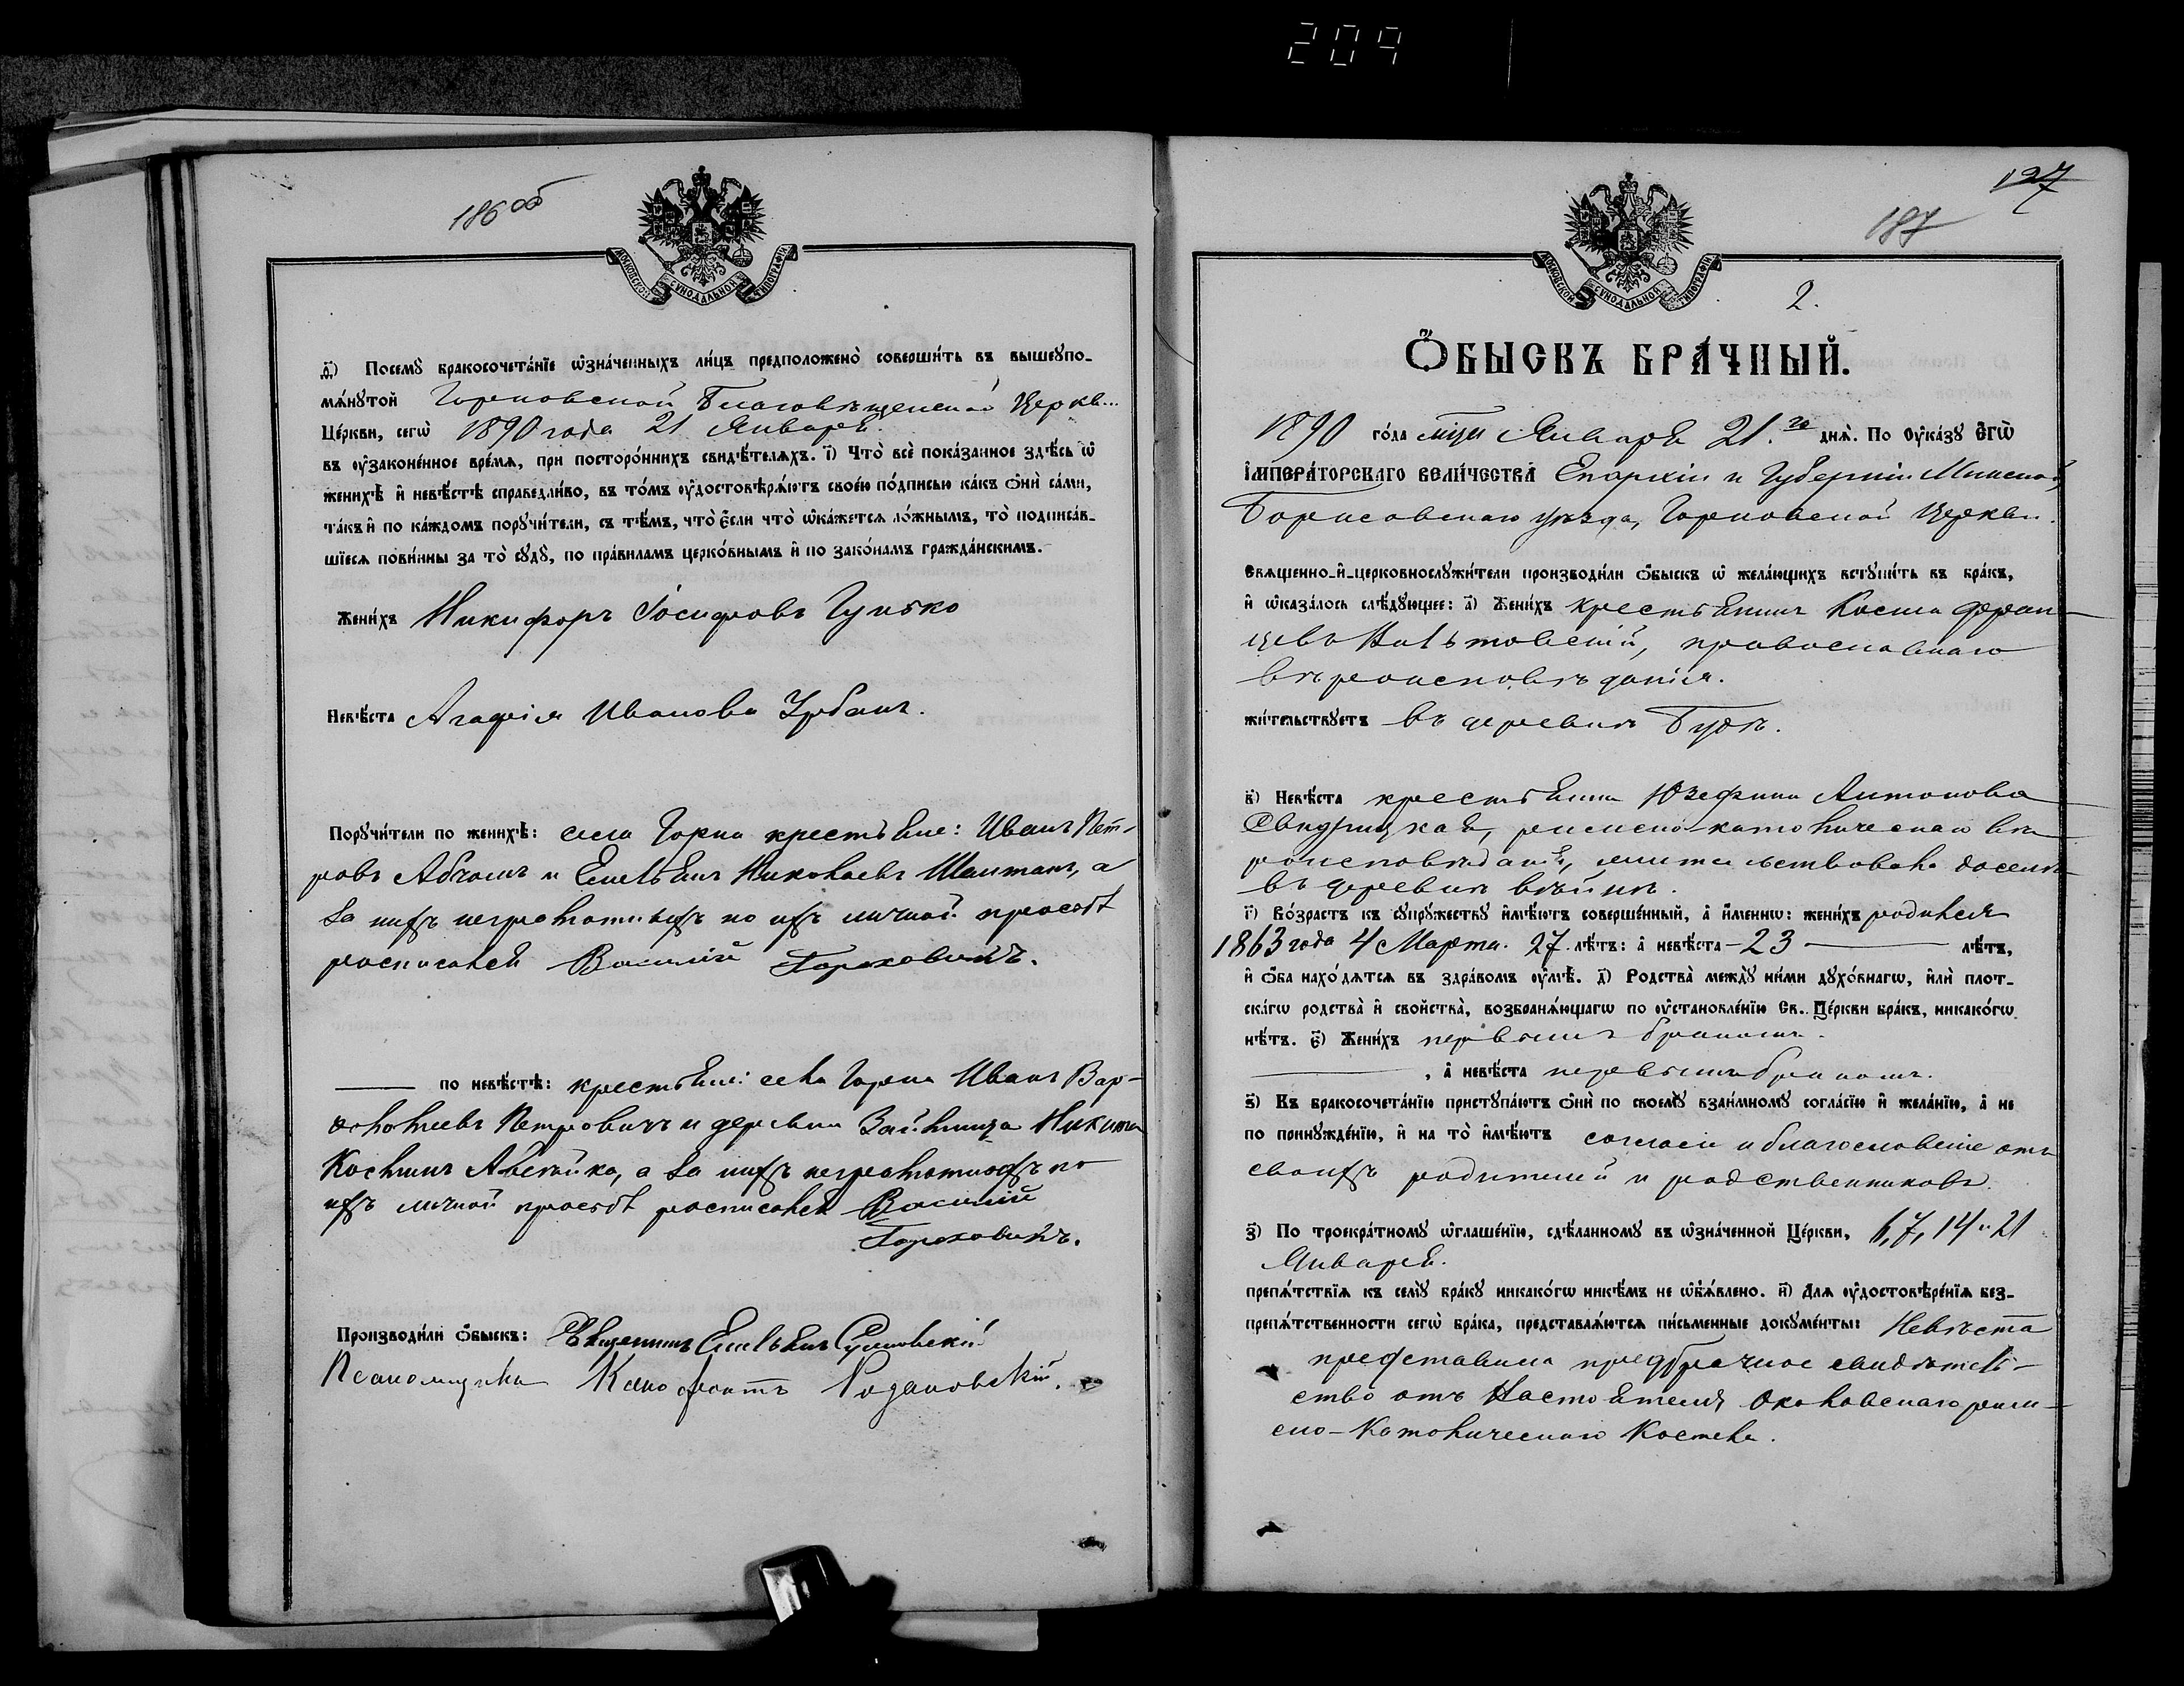 209
186 об
МОСКОВСКОЙ СѴНОДАЛЬНОЙ ТИПОГРАФІИ
д҃і) Посемꙋ̀ бракосочета́нїе ѡ҆зна́ченныхъ ли́цъ предположено̀ соверши́ть въ вышеꙋпо-
мѧ́нꙋтой Горновской Благовѣщенской Церкв...
Це́ркви, сегѡ̀ 1890 года 21 Января
въ ᲂу҆зако́ненное вре́мѧ, при посторо́ннихъ свидѣ́телѧхъ. і҃) Что̀ всѐ пока́занное здѣ́сь ѡ҆
женихѣ̀ и҆ невѣ́стѣ справедли́во, въ то́мъ ᲂу҆достовѣрѧ́ютъ свое́ю по́дписью ка́къ ѻ҆нѝ са́ми,
та́къ и҆ по ка́ждомъ порꙋчи́тели, съ тѣ́мъ, что̀ є҆́сли что̀ ѡ҆ка́жется ло́жнымъ, то̀ подписа́в-
шїеся пови́нны за то̀ сꙋдꙋ̀, по пра́виламъ церко́внымъ и҆ по зако́намъ гражда́нскимъ.
Жени́хъ Никифоръ Іосифовъ Гулько
Невѣ́ста Агафія Иванова Урбанъ.
Порꙋчи́тели по женихѣ̀: села Горна крестьяне: Иванъ Пет-
ровъ Абрамъ и Емельянъ Николаевъ Шантанъ, а
за нихъ неграмотныхъ по ихъ личной просьбѣ
росписался Василій Гороховикъ.
по невѣ́стѣ: крестьяне: села Горна Иванъ Вар-
Ѳоломеевъ Петровичъ и деревни Никита
Козминъ а за нихъ неграмотныхъ по
ихъ личной просьбѣ росписался Василій
Гороховикъ.
Производи́ли ѻ҆́быскъ: Священникъ Емельянъ
Псаломщикъ Ксенофонтъ
127
187
МОСКОВСКОЙ СѴНОДАЛЬНОЙ ТИПОГРАФІИ
2.
Ѻ҆БЫСКЪ БРА́ЧНЫЙ.
1890 го́да мца Января 21.го днѧ̀. По ᲂу҆ка́зꙋ Є҆ГѠ̀
І҆МПЕРА́ТОРСКАГО ВЕЛИ́ЧЕСТВА Епархіи и Губерніи Минской,
Борисовскаго уѣзда, Горновской Церкви.
Свѧще́нно-и҆-церковнослꙋжи́тели производи́ли ѻ҆́быскъ ѡ҆ жела́ющихъ встꙋпи́ть въ бра́къ,
и҆ ѡ҆каза́лось слѣ́дꙋющее: а҃) Жени́хъ крестьянинъ Косма Фран-
цевъ православнаго
вѣроисповѣданія.
жи́тельствꙋетъ въ деревнѣ Будѣ.
в҃) Невѣ́ста крестьянка Юзефина Антонова
Свидрицкая, римско-католическаго вѣ-
роисповѣданія, жительствовала доселѣ
въ деревнѣ
г҃) Во́зрастъ къ сꙋпрꙋ́жествꙋ и҆мѣ́ютъ соверше́нный, а҆ и҆́меннѡ: жени́хъ родился
1863 года 4 Марта. 27 лѣ́тъ: а҆ невѣ́ста - 23 лѣ́тъ,
и҆ ѻ҆́ба нахо́дѧтся въ здра́вомъ ᲂу҆мѣ̀. д҃) Родства̀ междꙋ̀ ни́ми дꙋхо́внагѡ, и҆лѝ плот-
ска́гѡ родства̀ и҆ сво́йства, возбранѧ́ющагѡ по ᲂу҆становле́нїю Св. Це́ркви бра́къ, никако́гѡ
нѣ́тъ. є҃) Жени́хъ первымъ бракомъ.
, а҆ невѣ́ста первымъ бракомъ.
ѕ҃) Къ бракосочета́нїю пристꙋпа́ютъ ѻ҆нѝ по своемꙋ̀ взаи́мномꙋ согла́сїю и҆ жела́нїю, а҆ не
по принꙋжде́нїю, и҆ на то̀ и҆мѣ́ютъ согласіе и благословеніе отъ
своихъ родителей и родственниковъ.
з҃) По троекра́тномꙋ ѡ҆глаше́нїю, сдѣ́ланномꙋ въ ѡ҆зна́ченной Це́ркви, 6, 7, 14 и 21
Января.
препѧ́тствїѧ къ семꙋ̀ бра́кꙋ никако́гѡ никѣ́мъ не ѡ҆б̾ѧ́влено. и҃) Для ᲂу҆достовѣре́нїѧ без-
препѧ́тственности сегѡ̀ бра́ка, представлѧ́ются пи́сьменные докꙋме́нты: Невѣста
представила предбрачное свидѣтель-
ство отъ Настоятеля Околовскаго рим-
ско-Католическаго Костела.